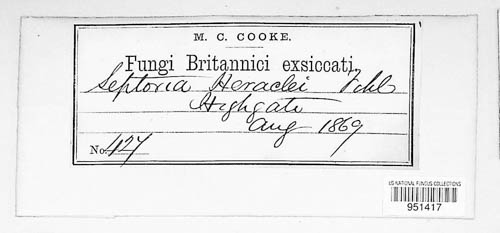 M. C. COOKE.
Fungi Britannici exsiccati.
Septoria Heraclei
Highgate
Aug 1869
No. 427
US NATIONAL FUNGUS COLLECTIONS
951417